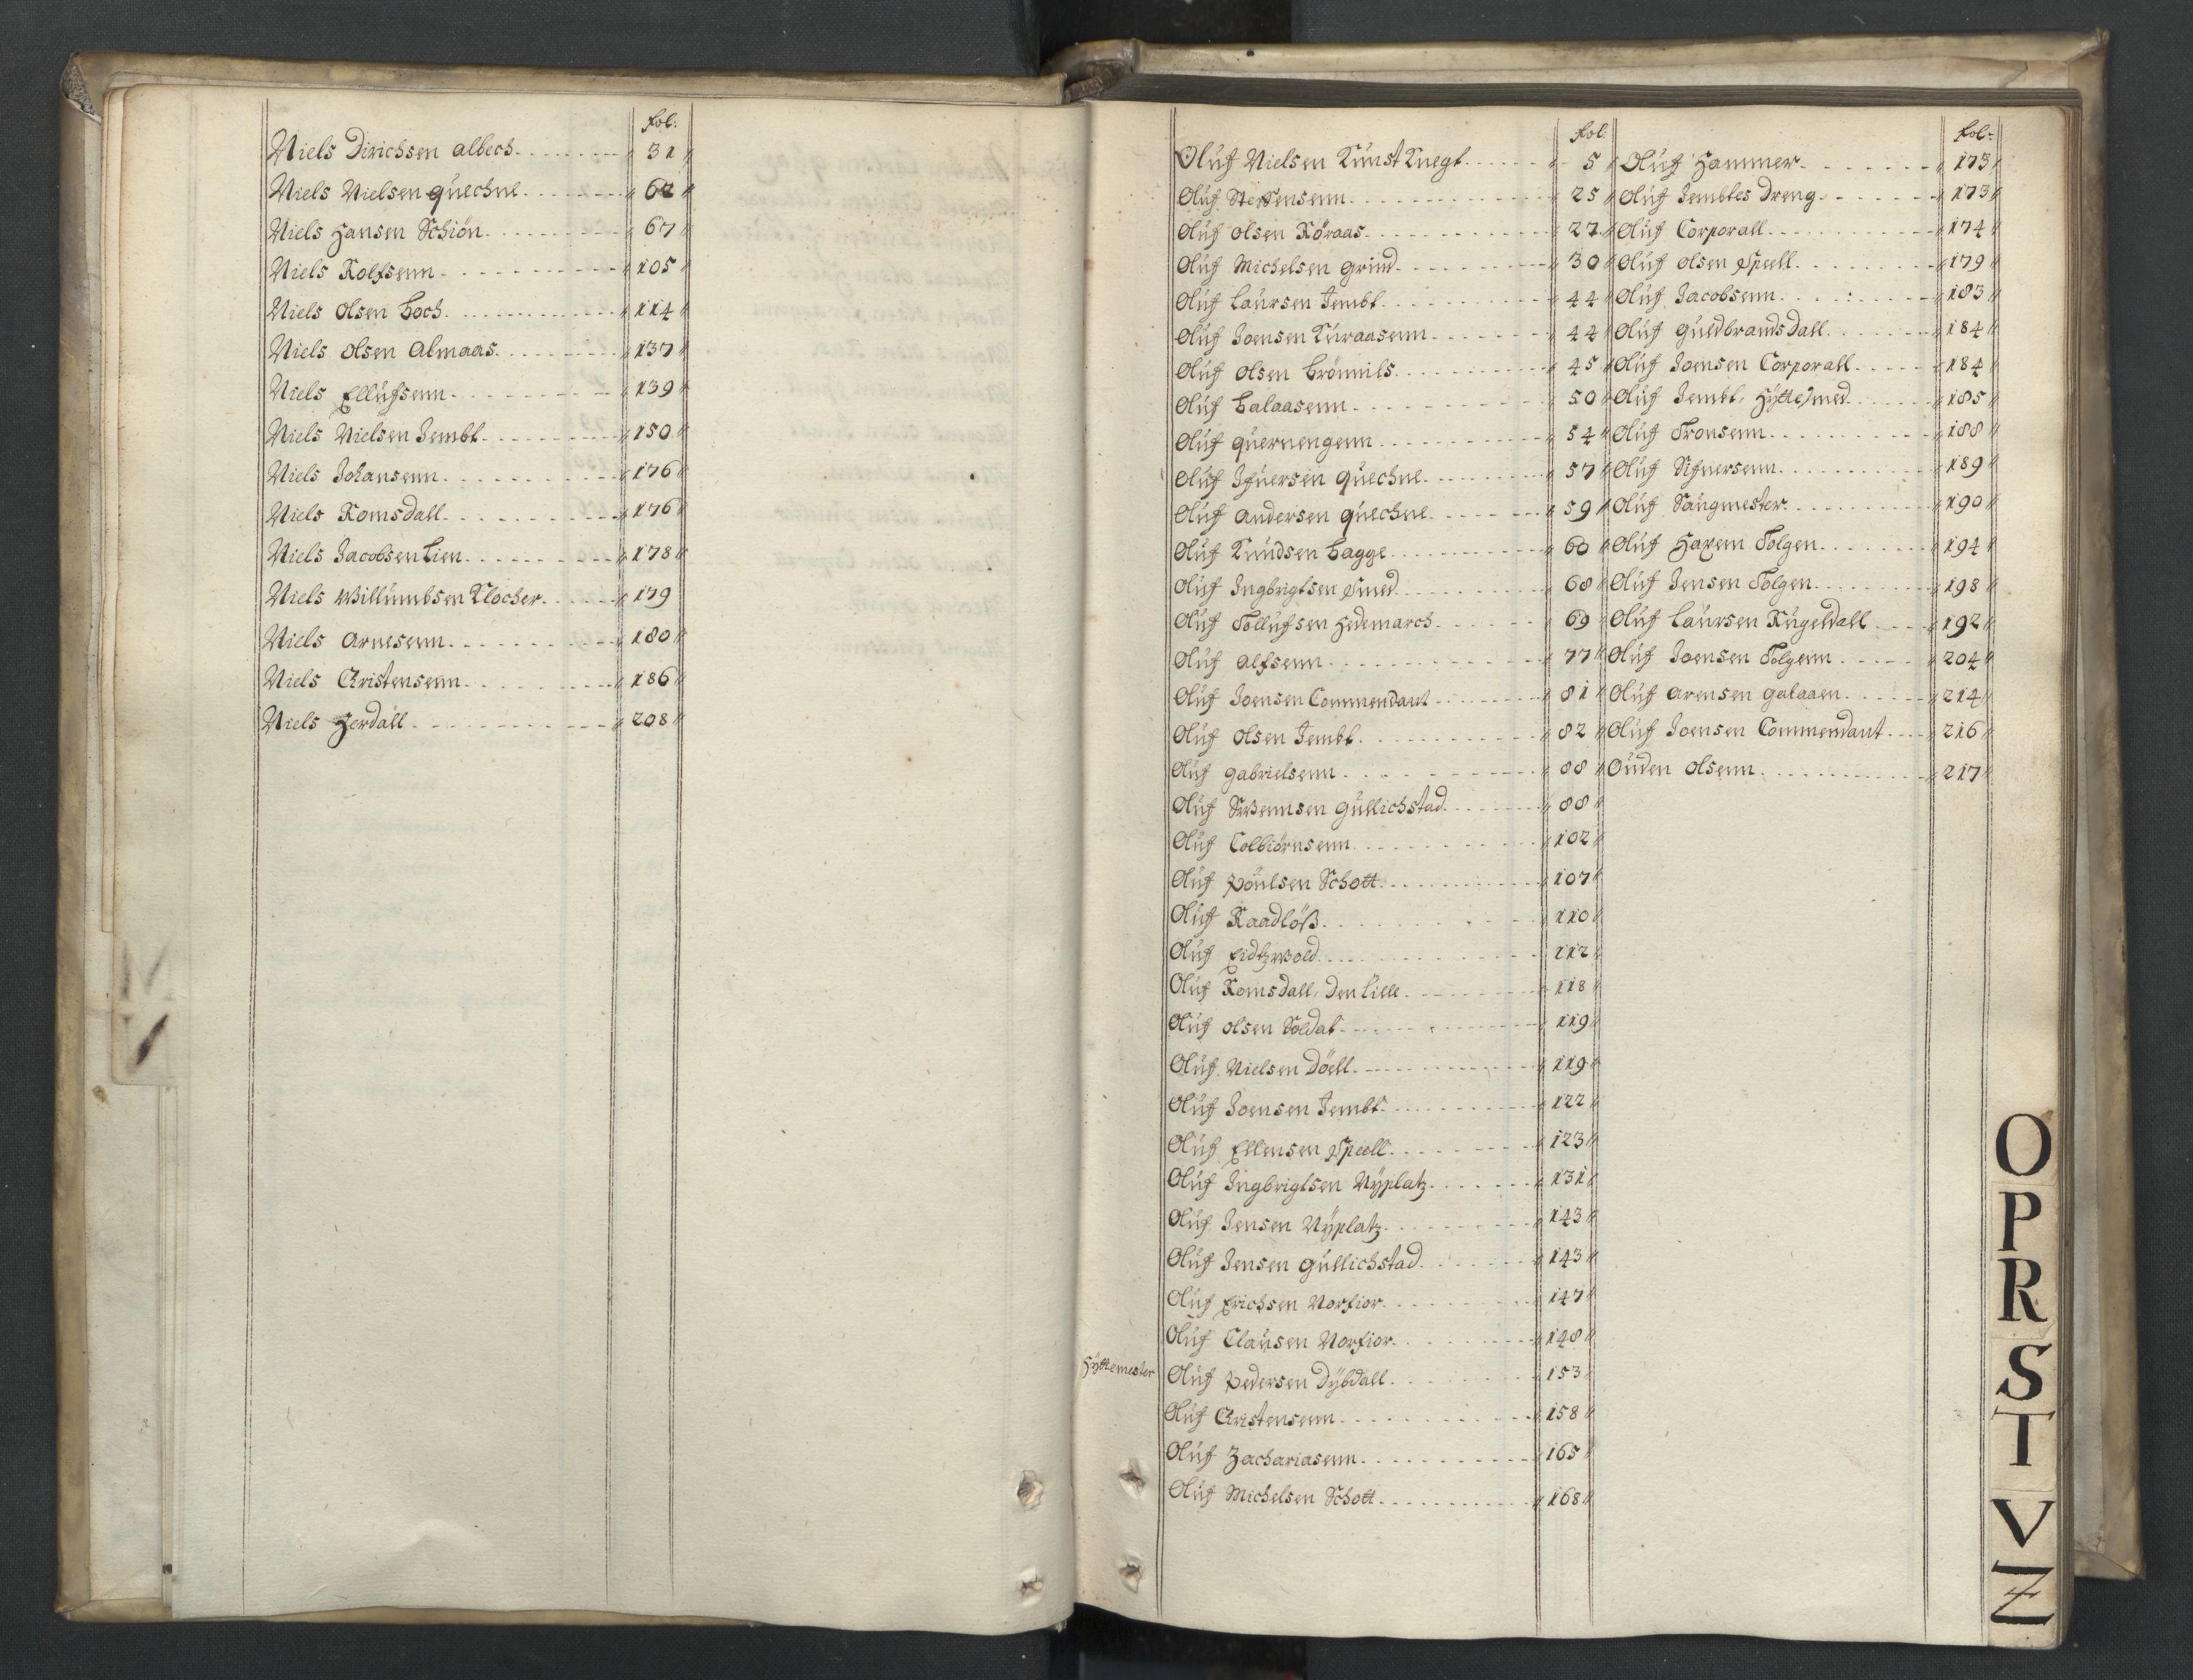 Fol:
Niels Dirichsen Albech. 31
Niels Nielsen Quechne. 62
Niels Hansen Schiön. 67
Niels Rolfsenn. 105
Niels Olsen Coch. 114
Niels Olsen Almaas. 137
Niels Ellüfsenn. 139
Niels Nielsen Jembt. 150
Niels Johansenn. 176
Niels Romsdall. 176
Niels Jacobsen Lien. 178
Niels Willumbsen Klocher. 179
Niels Arnesenn. 180
Niels Christensenn. 186
Niels Herdall. 208
Fol:
Olüf Nielsen KünstKnegt. 5
Olüf Steffensenn. 25
Olüf Olsen Röraas. 27
Olüf Michelsen Grind. 30
Olüf Laursen Jembt. 44
Olüf Joensen Kuraasenn. 44
Olüf Olsen Brönnils. 45
Olüf Galaasenn. 50
Olüf Quernengenn. 54
Olüf Ifuersen Quechne. 57
Olüf Andersen Quechne. 59
Olüf Knudsen Bagge. 60
Olüf Ingbrigtsen Smed. 68
Olüf Tollüfsen Hedemarch. 69
Olüf Alfsenn. 77
Olüf Joensen Commendant. 81
Olüf Olsen Jembt. 82
Olüf Gabrielsenn. 88
Olüf Swennsen Gullichstad. 88
Olüf Colbiörnsenn. 102
Olüf Poulsen Schott. 107
Olüf Raadlöß. 110
Olüf Eidtzwold. 112
Olüf Romsdall, Den Lille. 118
Olüf Olsen Soldat. 119
Olüf Nielsen Döell. 119
Olüf Joensen Jembt. 122
Olüf Ellensen Speell. 123
Olüf Ingbrigtsen Nyplatz. 131
Olüf Jensen Nyplatz. 143
Olüf Jensen Gullichstad. 143
Olüf Erichsen Norfior. 147
Olüf Clausen Norfior. 148
Hyttemester Olüf Pedersen Dybdall. 153
Olüf Christensenn. 158
Olüf Zachariasenn. 165
Olüf Michelsen Schott. 168
Fol:
Olüf Hammer. 173
Olüf Jembtes Dreng. 173
Olüf Corporall. 174
Olüf Olsen Speell. 179
Olüf Jacobsenn. 183
Olüf Guldbrandsdall. 184
Olüf Joensen Corporall. 184
Olüf Jembt, Hyttesmed. 185
Olüf Tronsenn. 188
Olüf Sifuersenn. 189
Olüf Sangmester. 190
Olüf Tolgen. 194
Olüf Jensen Tolgen. 198
Olüf Laursen Rugeldall. 192
Olüf Joensen Tolgenn. 204
Olüf Arensen Galaaen. 214
Olüf Joensen Commendant. 216
Ouden Olsenn. 217
O
P
R
S
T
V
Z